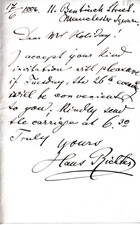 17/6 1886. 11. Bentinck Street.
Manchester Square
Dear Mr Holiday!
I accept your kind
invitation with pleasure
if Tuesday the 26th
will be convenient
to you. Kindly send
the carriage at 6.30
Truly
Yours
Hans Richter